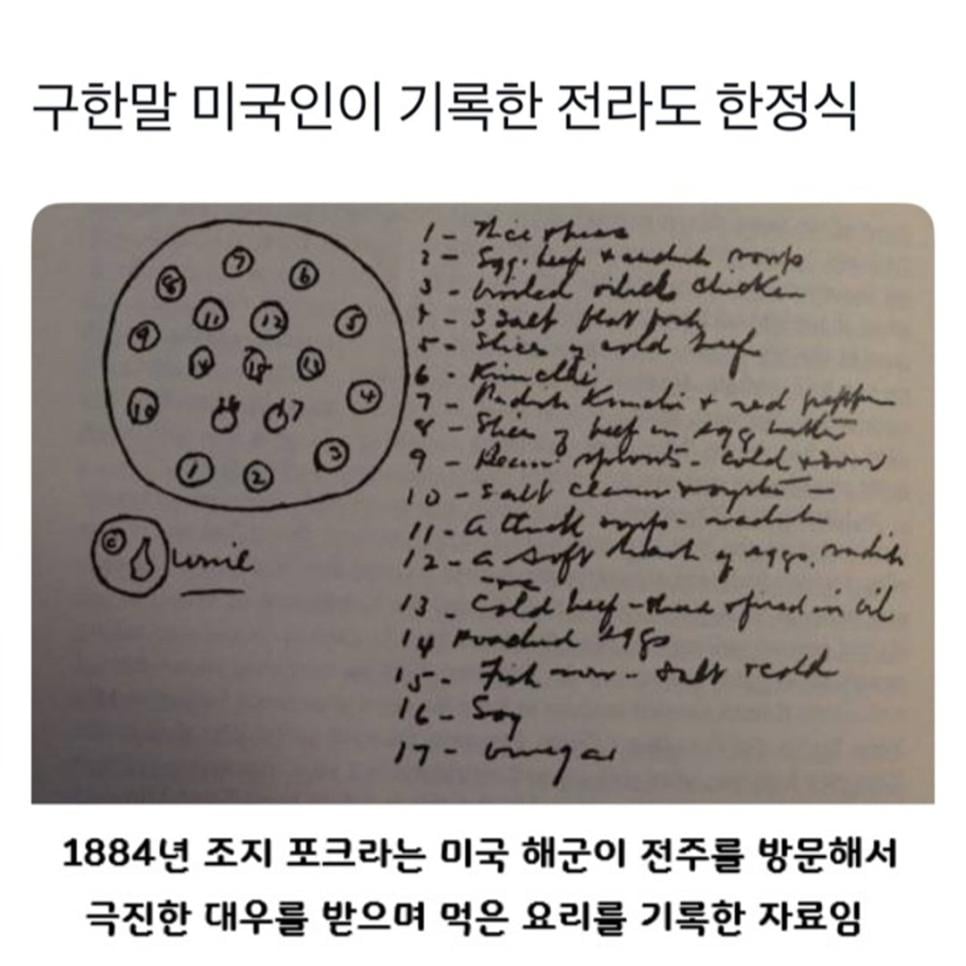 구한말 미국인이 기록한 전라도 한정식
7
8 6
11 12 5
9
14 15 13
4
10 16 17
3
1 2
wine
1 - Rice + beans
2 - Egg, beef + radish soup
3 - broiled chicken
4 - 3 salt
5 - Slices of cold beef
6 - Kimchi
7 - Radish Kimchi + red pepper
8 - Slices of beef in egg batter
9 - Bean sprouts - cold + sour
10 - Salt clams + oysters
11 - a thick soup - radish
12 - a soft of eggs, radish
13 - Cold beef - fried in oil
14 Poached eggs
15 - Fish - salt + cold
16 - Soy
17 - Vinegar
1884년 조지 포크라는 미국 해군이 전주를 방문해서
극진한 대우를 받으며 먹은 요리를 기록한 자료임